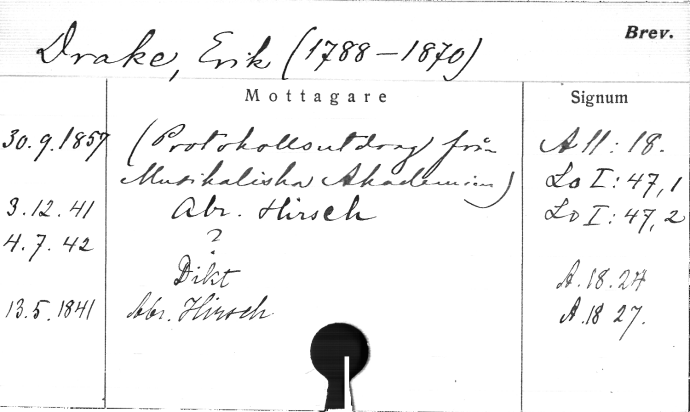 Brev.
Drake, Erik (1788–1870)
Mottagare Signum
30.9.1857 (Protokollsutdrag från A II: 18.
Musikaliska Akademien) Lo I: 47,1
3.12.41 Abr. Hirsch Lo I: 47,2
4.7.42 ?
Dikt A.18.24
13.5.1841 Abr. Hirsch A.18 27.